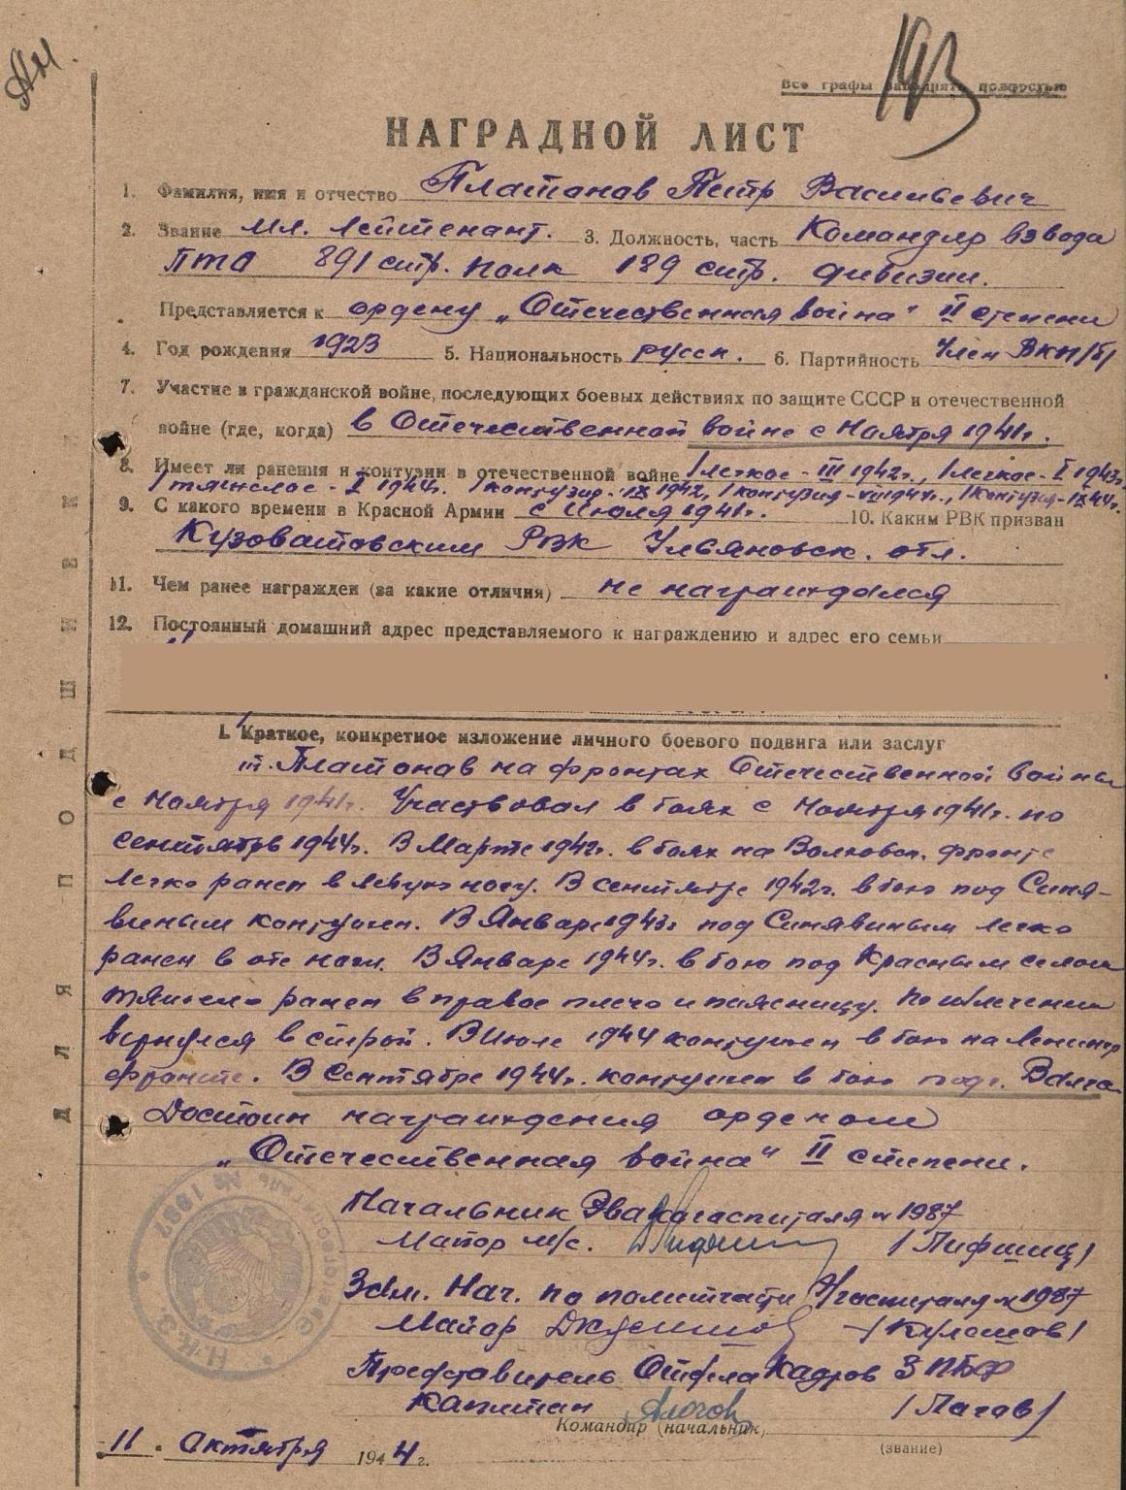 Ан.
193
Все графы заполнять полностью
НАГРАДНОЙ ЛИСТ
1. Фамилия, имя и отчество Платонав Петр Васильевич
2. Звание Мл. лейтенант. 3. Должность, часть Командир взвода
ПТО 891 стр. полк 189 стр. дивизии.
Представляется к ордену „Отечественная война" II степени
4. Год рождения 1923 5. Национальность русск. 6. Партийность Член ВКП/б/
7. Участие в гражданской войне, последующих боевых действиях по защите СССР и отечественной
войне (где, когда) в Отечественной войне с Ноября 1941г.
8. Имеет ли ранения и контузии в отечественной войне 1 легкое - III 1942г., 1 легкое - I 1943г.
1 тяжелое - I 1944г. 1 контузия - IX 1942, 1 контузия - VII 1944г., 1 контузия - IX 44г.
9. С какого времени в Красной Армии с Июля 1941г. 10. Каким РВК призван
Кузоватовским РВК Ульяновск. отл.
11. Чем ранее награжден (за какие отличия) не награждался
12. Постоянный домашний адрес представляемого к награждению и адрес его семьи
I. Краткое, конкретное изложение личного боевого подвига или заслуг
т. Платонав на фронтах Отечественной войны
с Ноября 1941г. Участвовал в боях с Ноября 1941г. по
Сентябрь 1944г. В Марте 1942г. в боях на Волховск. фронте
легко ранен в левую ногу. В сентябре 1942г. в бою под Синя-
виным контужен. В Январе 1943г. под Синявиным легко
ранен в обе ноги. В Январе 1944г. в бою под Красным селом
тяжело ранен в правое плечо и поясницу. По излечении
вернулся в строй. В Июле 1944 контужен в бою на Ленингр
фронте. В Сентябре 1944г. контужен в бою под г. Валга
Достоин награждения орденом
„Отечественная война" II степени.
Начальник Эвакогоспиталя № 1987
Майор м/с. /Лифшиц/
Зам. Нач. по политчасти Э/госпиталя № 1987
Майор /Кулешов/
Представитель Отдела Кадров 3 ПБФ
Капитан /Лагов/
Командир (начальник)
(звание)
„11" Октября 1944г.
ДЛЯ ПОДШИВКИ
Н.К.З.
№ 1987